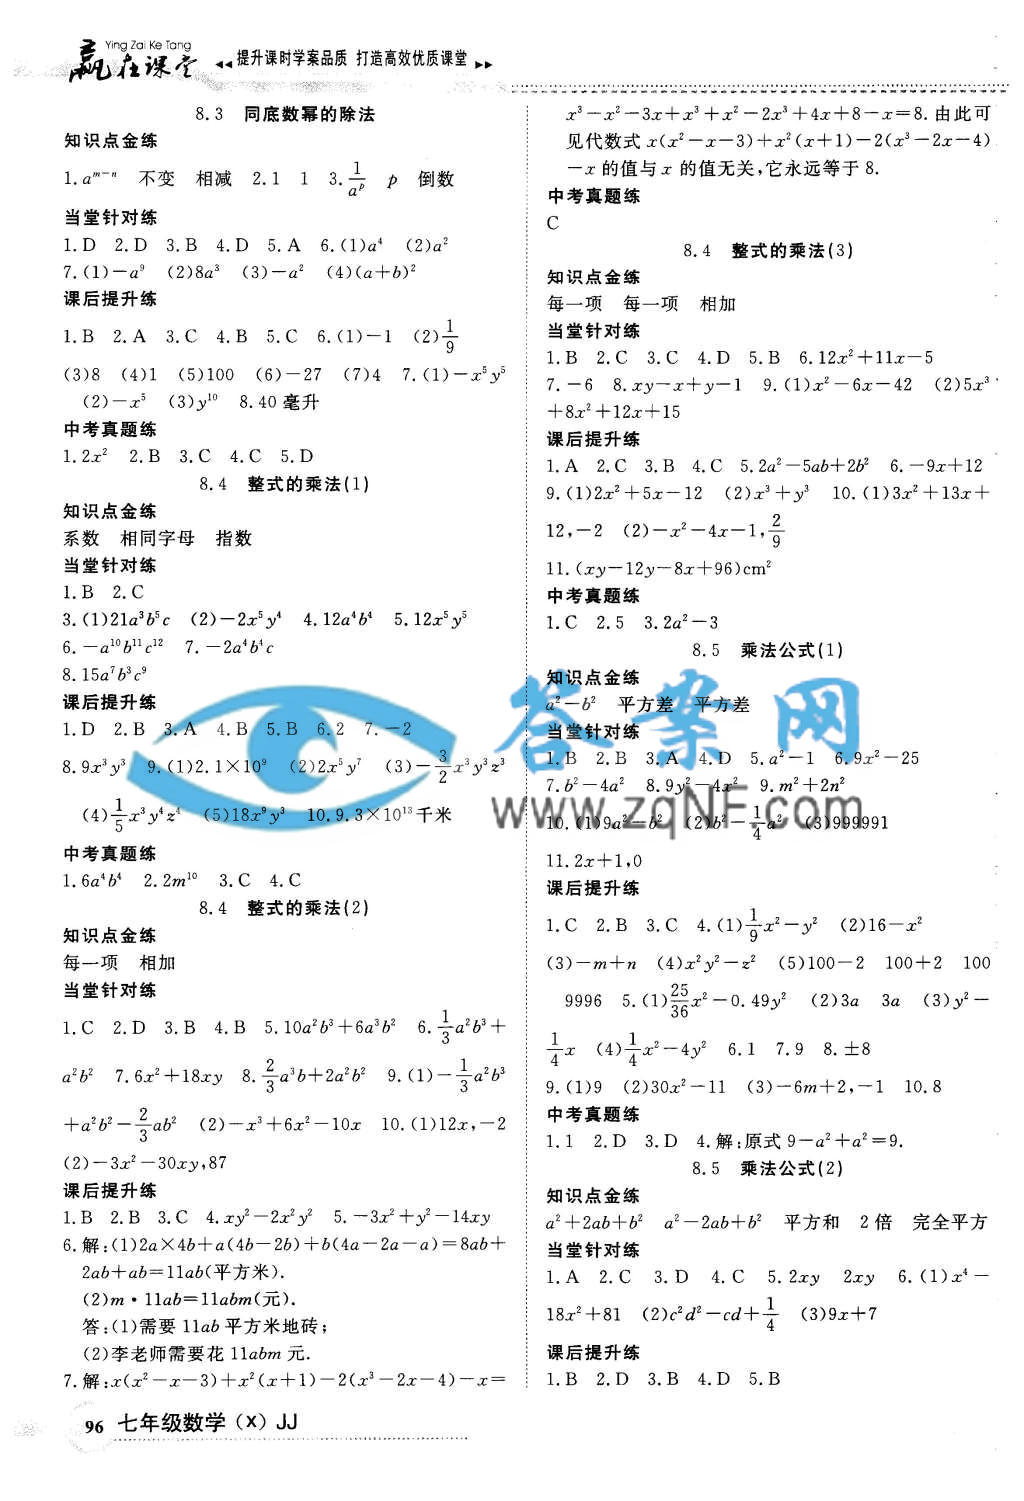 Ying Zai Ke Tang
赢在课堂
◂◂提升课时学案品质 打造高效优质课堂▸▸
8.3 同底数幂的除法
知识点金练
1.a^{m-n} 不变 相减 2.1 1 3.1/a^p p 倒数
当堂针对练
1.D 2.D 3.B 4.D 5.A 6.(1)a⁴ (2)a²
7.(1)-a⁹ (2)8a³ (3)-a² (4)(a+b)²
课后提升练
1.B 2.A 3.C 4.B 5.C 6.(1)-1 (2)1/9
(3)8 (4)1 (5)100 (6)-27 (7)4 7.(1)-x⁵y⁵
(2)-x⁵ (3)y¹⁰ 8.40毫升
中考真题练
1.2x² 2.B 3.C 4.C 5.D
8.4 整式的乘法(1)
知识点金练
系数 相同字母 指数
当堂针对练
1.B 2.C
3.(1)21a³b⁵c (2)-2x⁵y⁴ 4.12a⁴b⁴ 5.12x⁵y⁵
6.-a¹⁰b¹¹c¹² 7.-2a⁴b⁴c
8.15a⁷b³c⁹
课后提升练
1.D 2.B 3.A 4.B 5.B 6.2 7.-2
8.9x³y³ 9.(1)2.1×10⁹ (2)2x⁵y⁷ (3)-3/2x³y³z³
(4)1/5x³y⁴z⁴ (5)18x⁹y³ 10.9.3×10¹³千米
中考真题练
1.6a⁴b⁴ 2.2m¹⁰ 3.C 4.C
8.4 整式的乘法(2)
知识点金练
每一项 相加
当堂针对练
1.C 2.D 3.B 4.B 5.10a²b³+6a³b² 6.1/3a²b³+
a²b² 7.6x²+18xy 8.2/3a³b+2a²b² 9.(1)-1/3a²b³
+a²b²-2/3ab² (2)-x³+6x²-10x 10.(1)12x,-2
(2)-3x²-30xy,87
课后提升练
1.B 2.B 3.C 4.xy²-2x²y² 5.-3x²+y²-14xy
6.解:(1)2a×4b+a(4b-2b)+b(4a-2a-a)=8ab+
2ab+ab=11ab(平方米).
(2)m·11ab=11abm(元).
答:(1)需要11ab平方米地砖;
(2)李老师需要花11abm元.
7.解:x(x²-x-3)+x²(x+1)-2(x³-2x-4)-x=
x³-x²-3x+x³+x²-2x³+4x+8-x=8.由此可
见代数式x(x²-x-3)+x²(x+1)-2(x³-2x-4)
-x的值与x的值无关,它永远等于8.
中考真题练
C
8.4 整式的乘法(3)
知识点金练
每一项 每一项 相加
当堂针对练
1.B 2.C 3.C 4.D 5.B 6.12x²+11x-5
7.-6 8.xy-x+y-1 9.(1)x²-6x-42 (2)5x³
+8x²+12x+15
课后提升练
1.A 2.C 3.B 4.C 5.2a²-5ab+2b² 6.-9x+12
9.(1)2x²+5x-12 (2)x³+y³ 10.(1)3x²+13x+
12,-2 (2)-x²-4x-1,2/9
11.(xy-12y-8x+96)cm²
中考真题练
1.C 2.5 3.2a²-3
8.5 乘法公式(1)
知识点金练
a²-b² 平方差 平方差
当堂针对练
1.B 2.B 3.A 4.D 5.a²-1 6.9x²-25
7.b²-4a² 8.9y²-4x² 9.m²+2n²
10.(1)9a²-b² (2)b²-1/4a² (3)999991
11.2x+1,0
课后提升练
1.C 2.B 3.C 4.(1)1/9x²-y² (2)16-x²
(3)-m+n (4)x²y²-z² (5)100-2 100+2 100
9996 5.(1)25/36x²-0.49y² (2)3a 3a (3)y²-
1/4x (4)1/4x²-4y² 6.1 7.9 8.±8
9.(1)9 (2)30x²-11 (3)-6m+2,-1 10.8
中考真题练
1.1 2.D 3.D 4.解:原式9-a²+a²=9.
8.5 乘法公式(2)
知识点金练
a²+2ab+b² a²-2ab+b² 平方和 2倍 完全平方
当堂针对练
1.A 2.C 3.D 4.C 5.2xy 2xy 6.(1)x⁴-
18x²+81 (2)c²d²-cd+1/4 (3)9x+7
课后提升练
1.B 2.D 3.D 5.B
答案网
www.zqNF.com
96 七年级数学(X) JJ